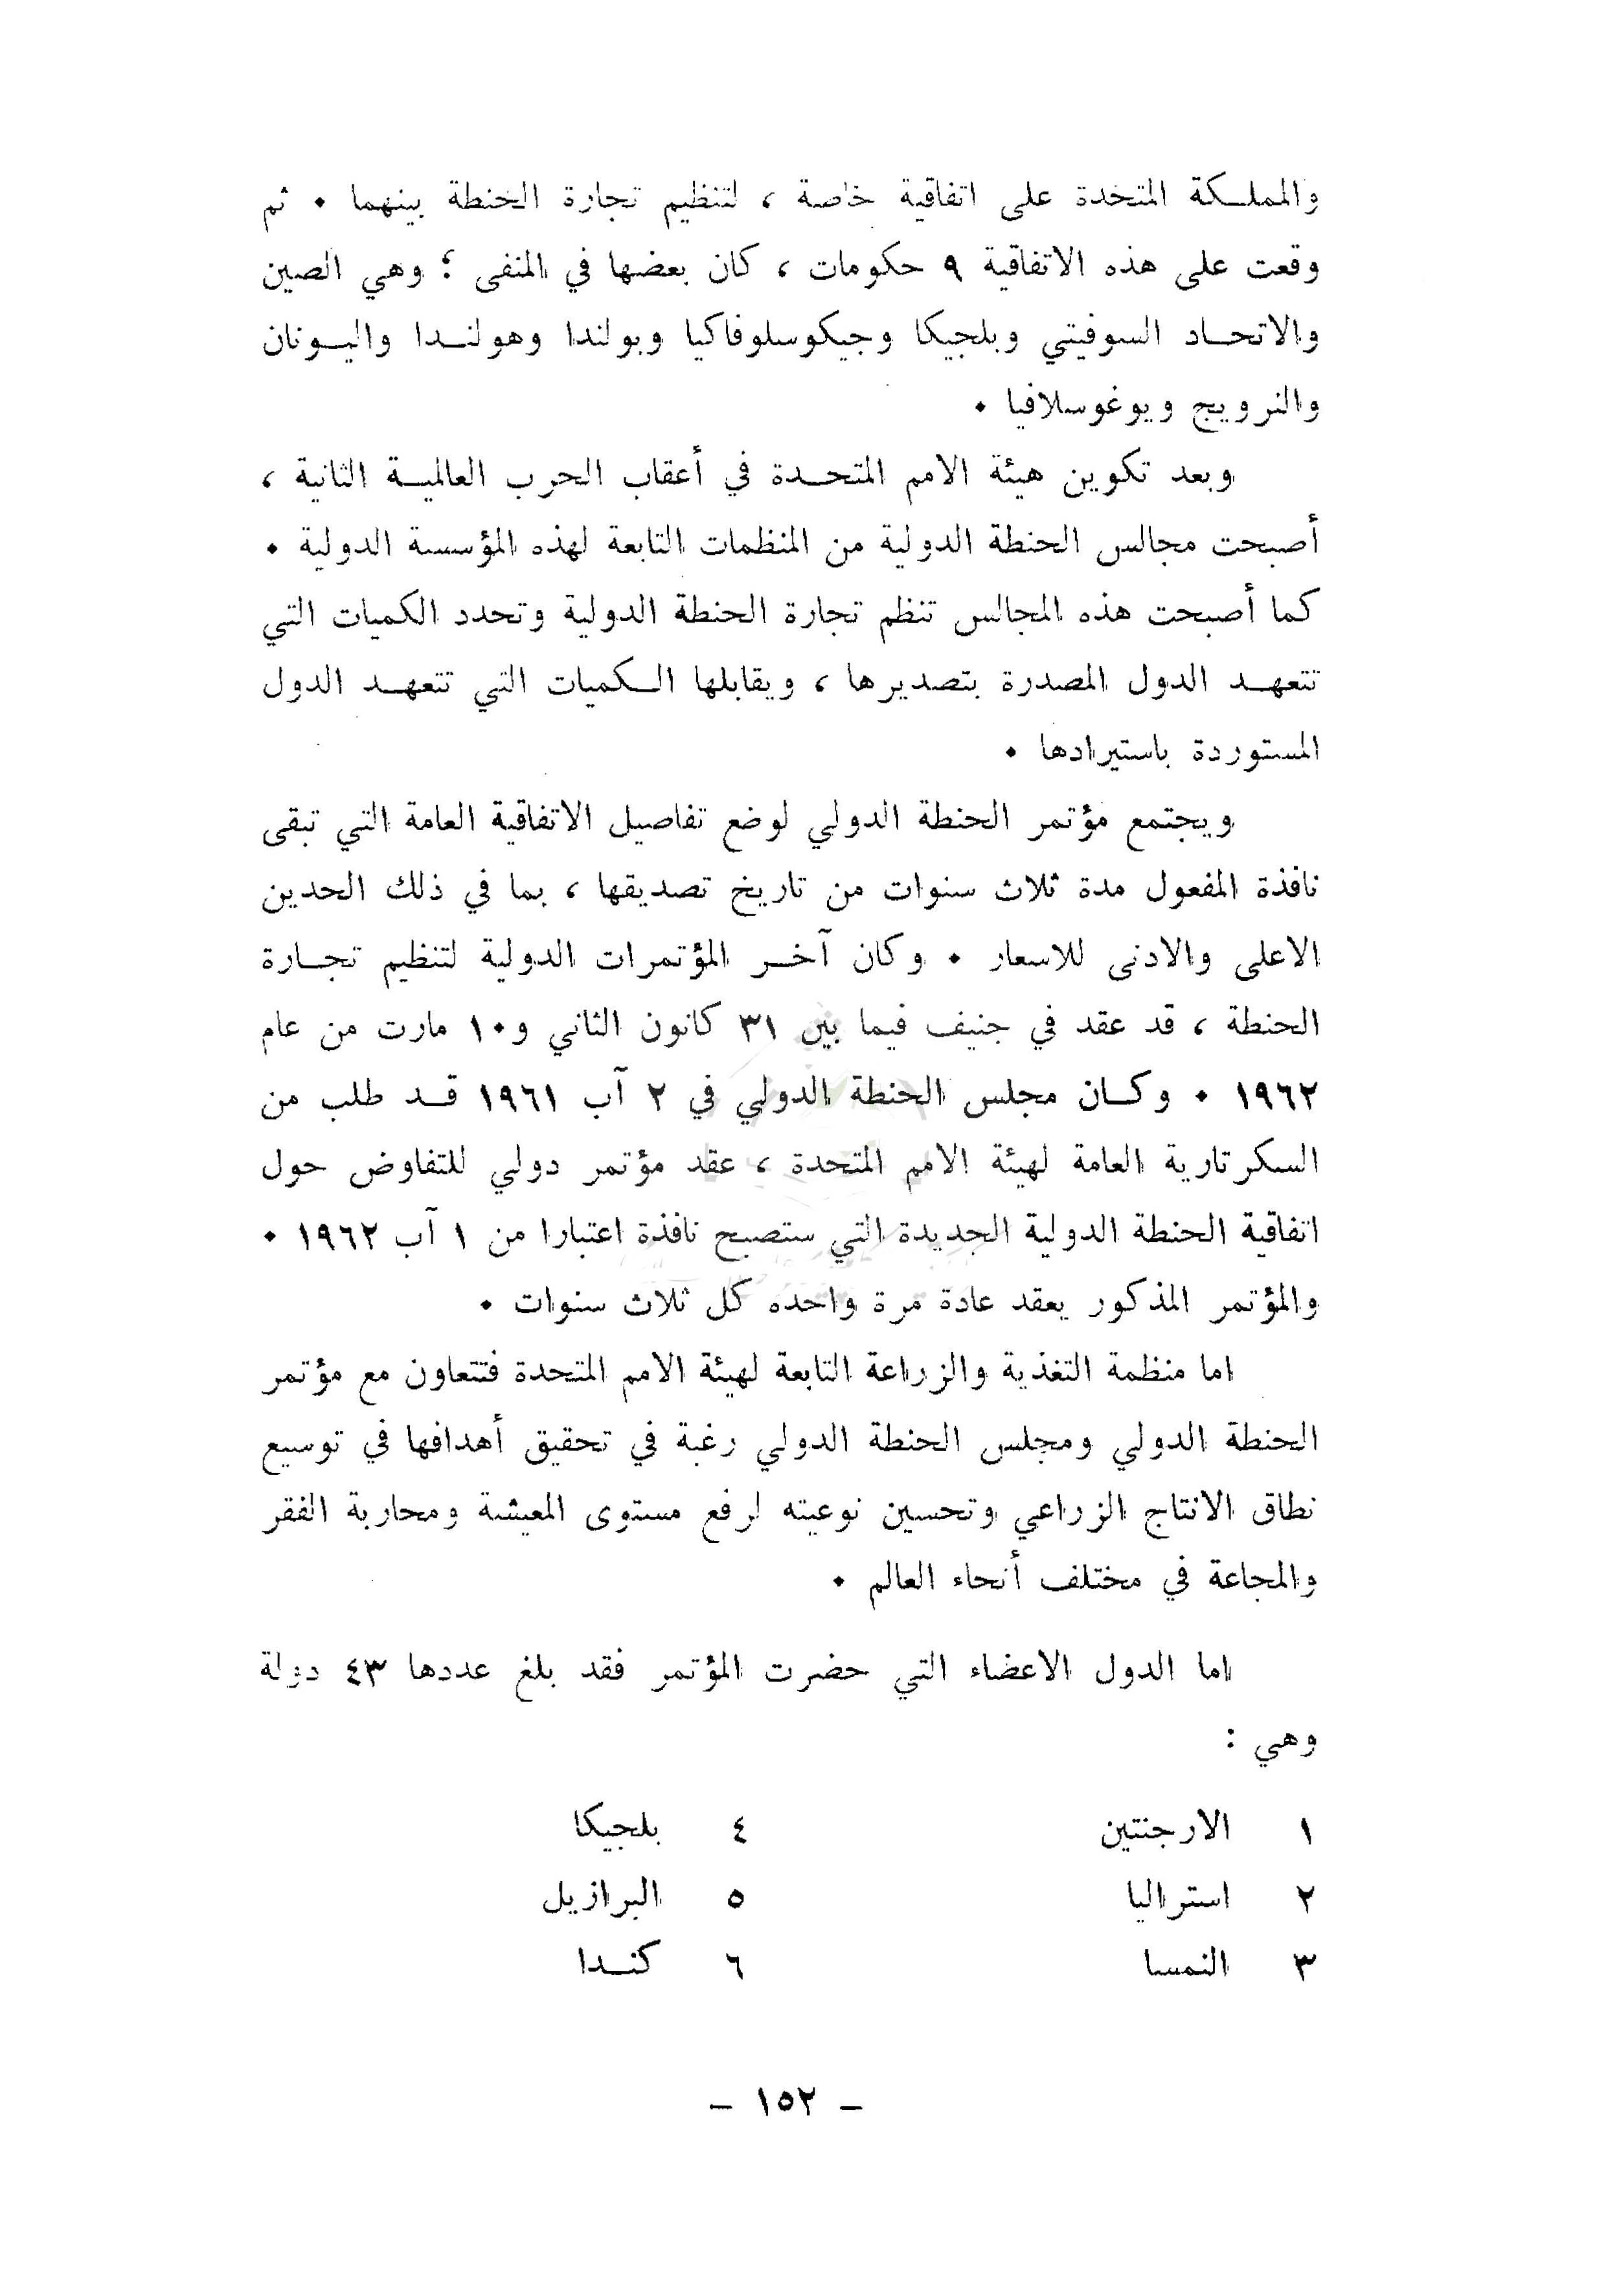 والمملكة المتحدة على اتفاقية خاصة ، لتنظيم تجارة الحنطة بينهما . ثم
وقعت على هذه الاتفاقية ٩ حكومات ، كان بعضها في المنفى ؛ وهي الصين
والاتحاد السوفيتي وبلجيكا وجيكوسلوفاكيا وبولندا وهولندا واليونان
والنرويج ويوغوسلافيا .
وبعد تكوين هيئة الامم المتحدة في أعقاب الحرب العالمية الثانية ،
أصبحت مجالس الحنطة الدولية من المنظمات التابعة لهذه المؤسسة الدولية .
كما أصبحت هذه المجالس تنظم تجارة الحنطة الدولية وتحدد الكميات التي
تتعهد الدول المصدرة بتصديرها ، ويقابلها الكميات التي تتعهد الدول
المستوردة باستيرادها .
ويجتمع مؤتمر الحنطة الدولي لوضع تفاصيل الاتفاقية العامة التي تبقى
نافذة المفعول مدة ثلاث سنوات من تاريخ تصديقها ، بما في ذلك الحدين
الاعلى والادنى للاسعار . وكان آخر المؤتمرات الدولية لتنظيم تجارة
الحنطة ، قد عقد في جنيف فيما بين ٣١ كانون الثاني و١٠ مارت من عام
١٩٦٢ . وكان مجلس الحنطة الدولي في ٢ آب ١٩٦١ قد طلب من
السكرتارية العامة لهيئة الامم المتحدة ، عقد مؤتمر دولي للتفاوض حول
اتفاقية الحنطة الدولية الجديدة التي ستصبح نافذة اعتبارا من ١ آب ١٩٦٢ .
والمؤتمر المذكور يعقد عادة مرة واحده كل ثلاث سنوات .
اما منظمة التغذية والزراعة التابعة لهيئة الامم المتحدة فتتعاون مع مؤتمر
الحنطة الدولي ومجلس الحنطة الدولي رغبة في تحقيق أهدافها في توسيع
نطاق الانتاج الزراعي وتحسين نوعيته لرفع مستوى المعيشة ومحاربة الفقر
والمجاعة في مختلف أنحاء العالم .
اما الدول الاعضاء التي حضرت المؤتمر فقد بلغ عددها ٤٣ دولة
وهي :
١ الارجنتين ٤ بلجيكا
٢ استراليا ٥ البرازيل
٣ النمسا ٦ كندا
– ١٥٢ –